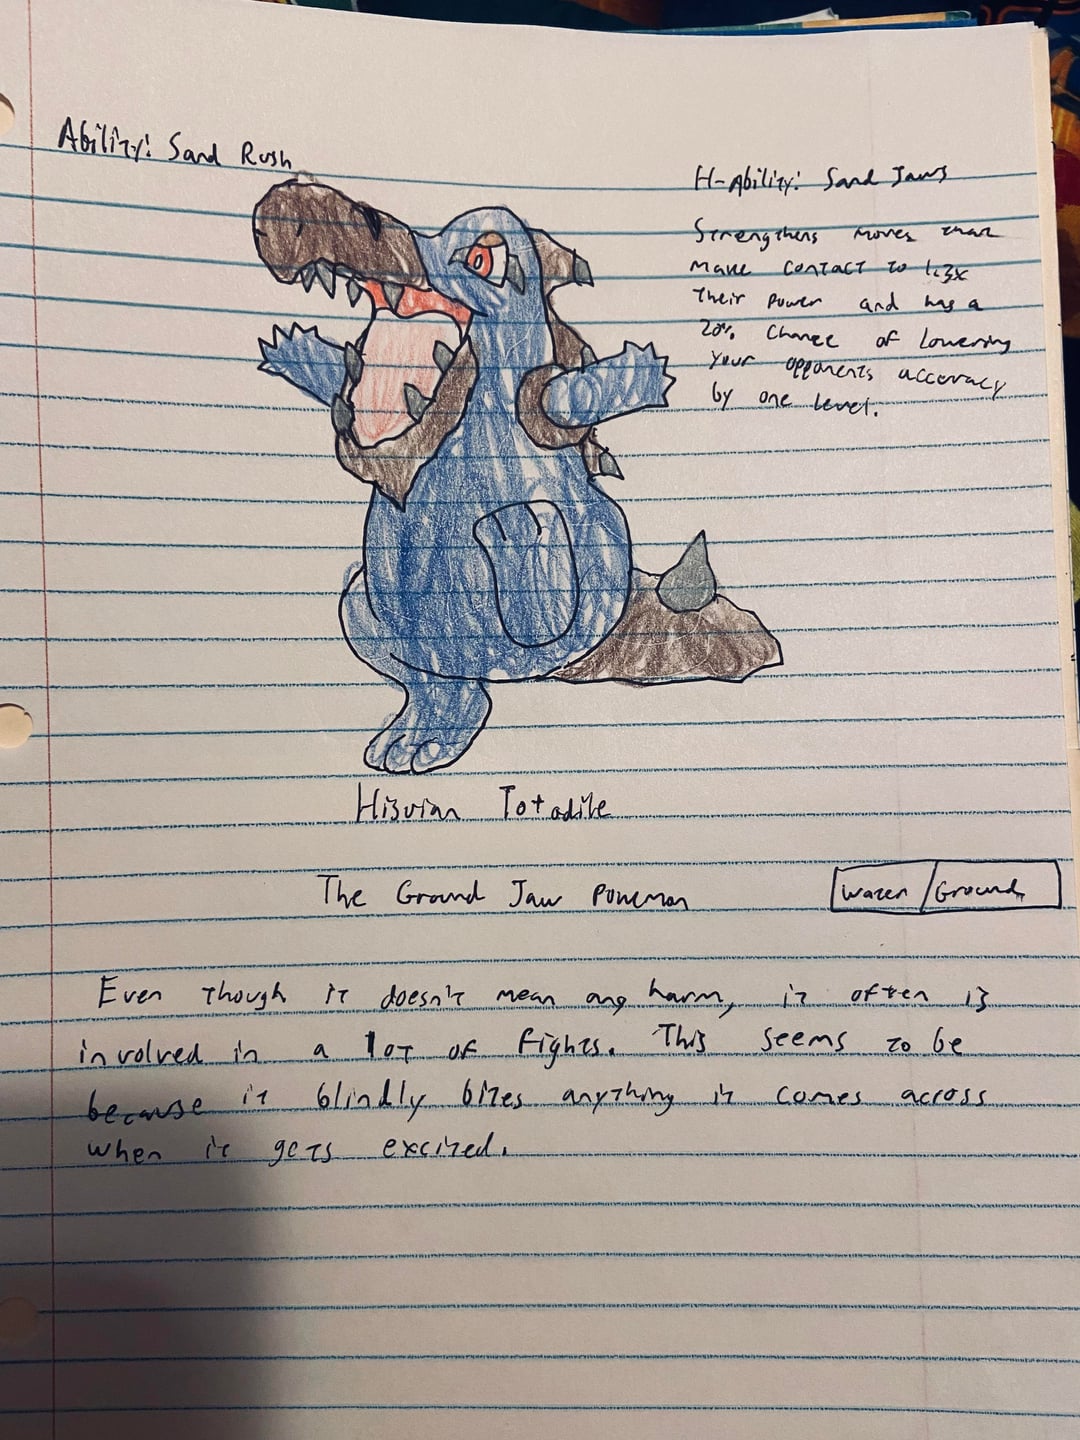 Ability: Sand Rush
H-Ability: Sand Jaws
Strengthens moves that
make contact to 1.3x
their power and has a
20% chance of lowering
your opponents accuracy
by one level.
Hisuian Totodile
The Ground Jaw Pokemon
Water/Ground
Even though it doesn't mean any harm, it often is
involved in a lot of fights. This seems to be
because it blindly bites anything it comes across
when it gets excited.